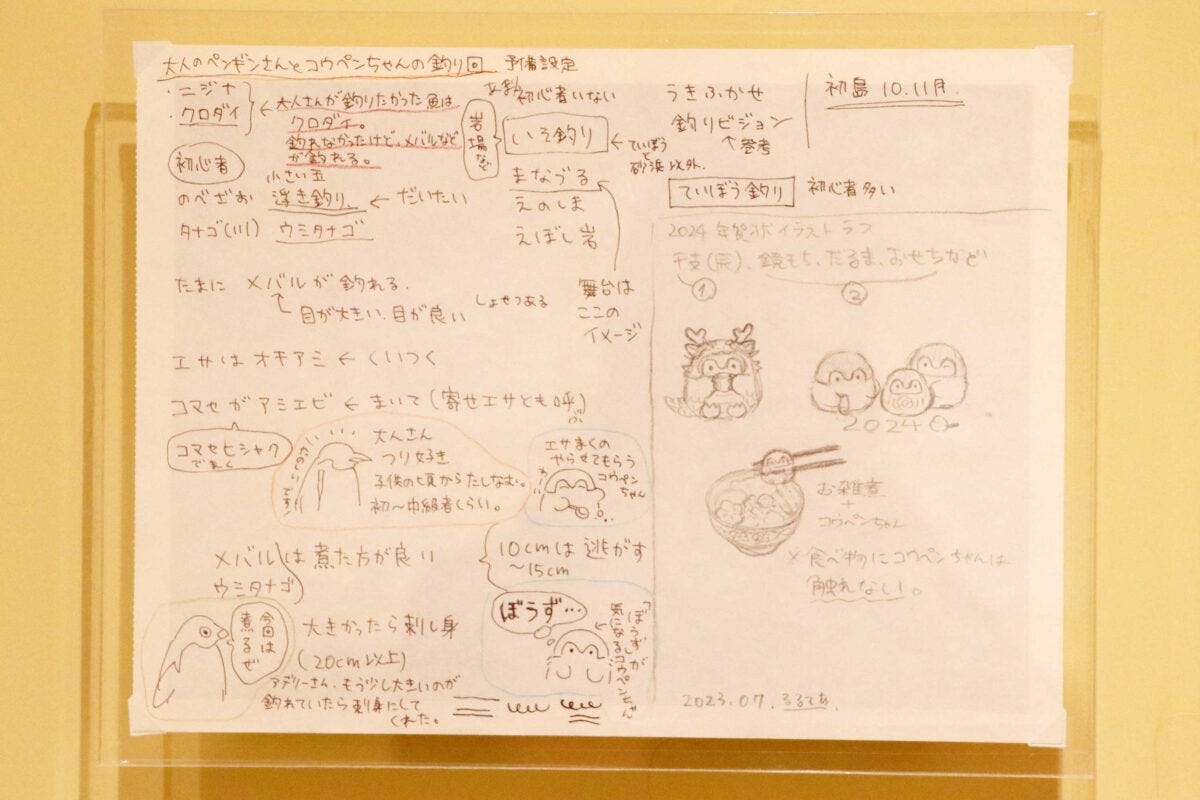 大人のペンギンさんとコウペンちゃんの釣り回 予備設定
・ニジナ
・クロダイ
大人さんが釣りたかった魚は
クロダイ。
釣れなかったけど、メバルなど
が釣れる。
初心者
のべざお
小さい玉
浮き釣り
← だいたい
タナゴ(川) ウミタナゴ
たまに メバルが釣れる。
目が大きい、目が良い
エサはオキアミ ← くいつく
コマセがアミエビ ← まいて(寄せエサとも呼ぶ)
コマセヒシャク
でまく
あまり初心者いない
岩場など
いそ釣り
← ていぼう
と
砂浜以外。
まなづる
えのしま
えぼし岩
しょせつある
舞台は
ここの
イメージ
うきふかせ
釣りビジョン
↑参考
ていぼう釣り 初心者多い
初島 10.11月.
たのしいです!
大人さん
つり好き
子供の頃からたしなむ。
初〜中級者くらい。
エサまくの
やらせてもらう
コウペンちゃん
わーい
メバルは煮た方が良い
ウミタナゴ
10cmは逃がす
〜15cm
今回は
煮るぜ
大きかったら刺し身
(20cm以上)
アデリーさん、もう少し大きいのが
釣れていたら刺身にして
くれた。
ぼうず…
「ぼうず」が
気になるコウペンちゃん
2024 年賀状イラスト ラフ
干支(辰)、鏡もち、だるま、おせちなど
① ②
2024
お雑煮
+
コウペンちゃん
×食べ物にコウペンちゃんは
触れない!。
2023.07. るるてあ.